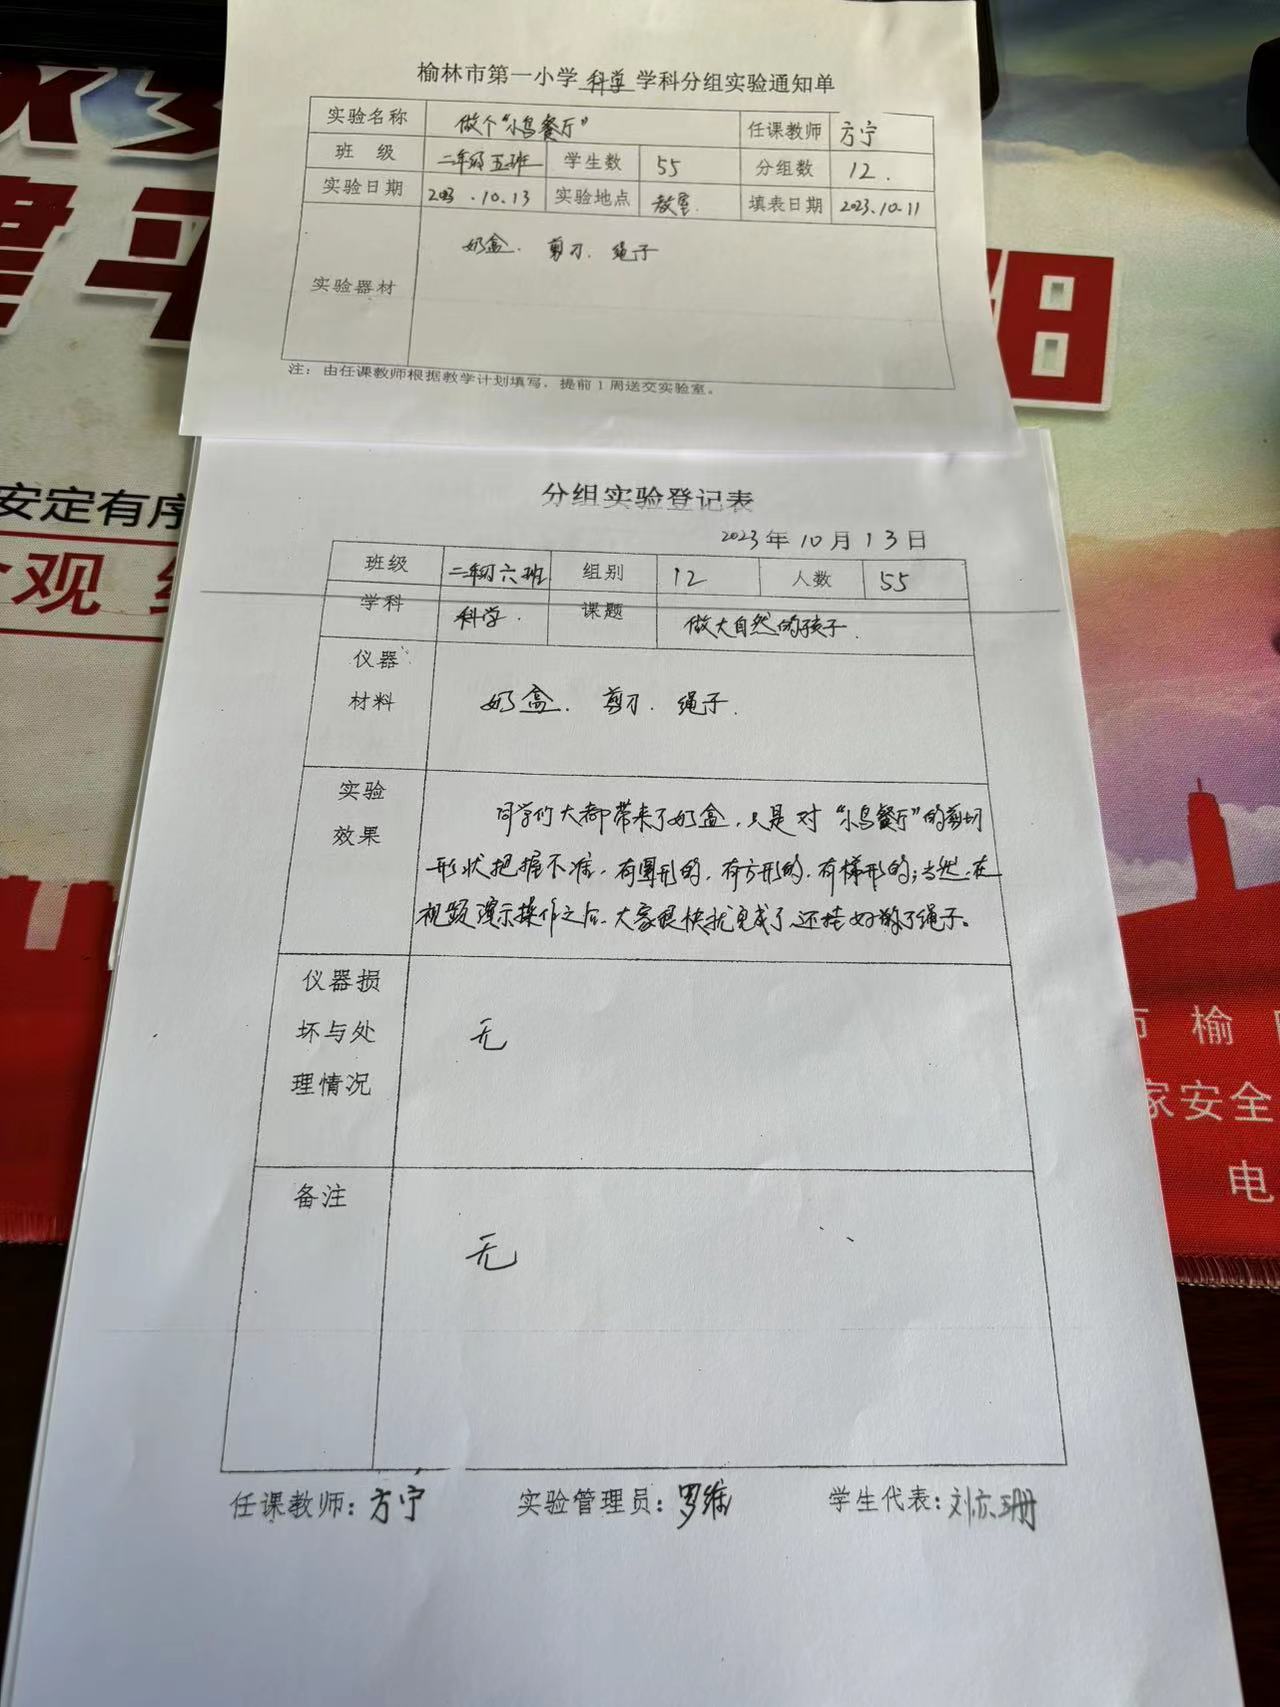 榆林市第一小学科学学科分组实验通知单
实验名称 做个“小鸟餐厅” 任课教师 方宁
班 级 二年级五班 学生数 55 分组数 12.
实验日期 2023.10.13 实验地点 教室. 填表日期 2023.10.11
实验器材 奶盒. 剪刀. 绳子
注：由任课教师根据教学计划填写，提前1周送交实验室。
分组实验登记表
2023年10月13日
班级 二年级六班 组别 12 人数 55
学科 科学. 课题 做大自然的孩子.
仪器
材料 奶盒. 剪刀. 绳子.
实验
效果
同学们大都带来了奶盒，只是对“小鸟餐厅”的剪切
形状把握不准，有圆形的，有方形的，有梯形的；当然，在
视频演示操作之后，大家很快就完成了，还挂好了绳子。
仪器损
坏与处
理情况
无
备注
无
任课教师：方宁 实验管理员：罗 学生代表：刘亦珊
安定有序
观
市 榆
家安全
电
阳